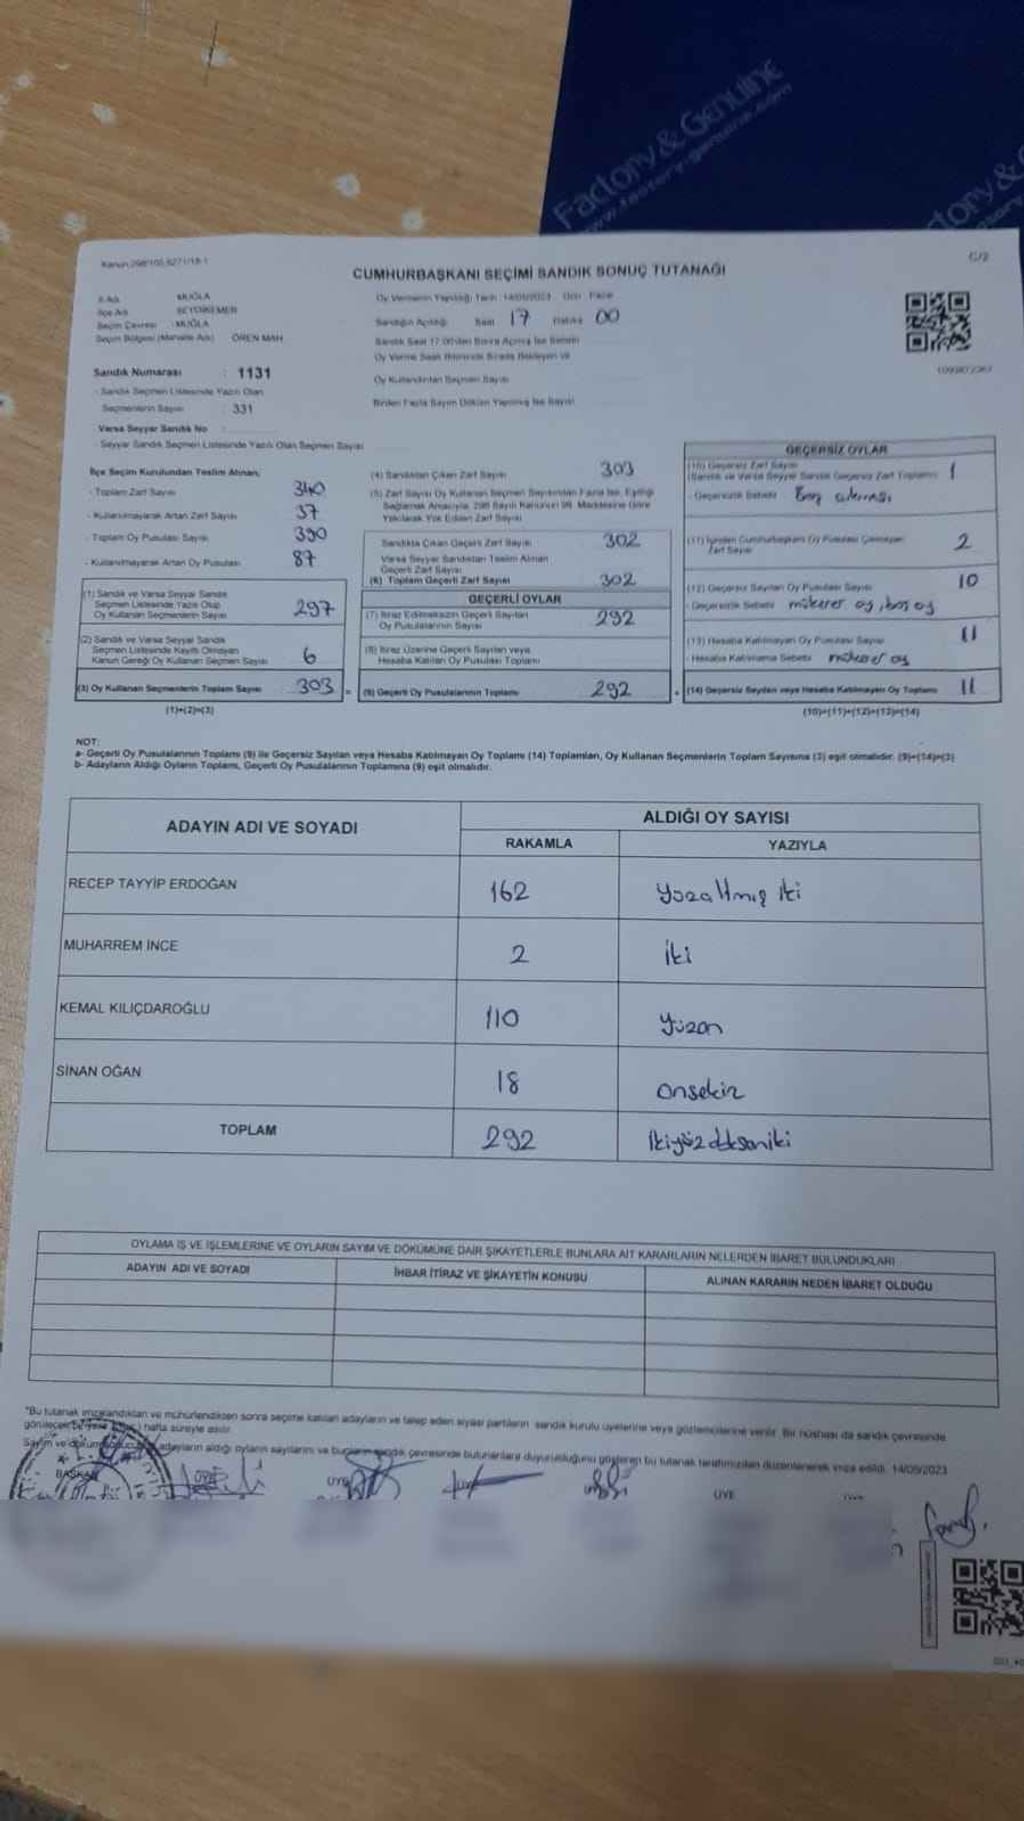 Factory & Genuine
www.factory-genuine.com
Kanun:298/105,6271/18-1
C/2
CUMHURBAŞKANI SEÇİMİ SANDIK SONUÇ TUTANAĞI
İl Adı MUĞLA
İlçe Adı SEYDİKEMER
Seçim Çevresi : MUĞLA
Seçim Bölgesi (Mahalle Adı) ÖREN MAH
Oy Vermenin Yapıldığı Tarih: 14/05/2023 Gün: Pazar
Sandığın Açıldığı Saat 17 Dakika 00
Sandık Saat 17:00'den Sonra Açılmış İse Sebebi
Oy Verme Saati Bitiminde Sırada Bekleyen ve
Oy Kullandırılan Seçmen Sayısı
Birden Fazla Sayım Döküm Yapılmış İse Sayısı
Sandık Numarası : 1131
- Sandık Seçmen Listesinde Yazılı Olan
Seçmenlerin Sayısı : 331
Varsa Seyyar Sandık No
- Seyyar Sandık Seçmen Listesinde Yazılı Olan Seçmen Sayısı
İlçe Seçim Kurulundan Teslim Alınan;
- Toplam Zarf Sayısı 340
- Kullanılmayarak Artan Zarf Sayısı 37
- Toplam Oy Pusulası Sayısı 390
- Kullanılmayarak Artan Oy Pusulası 87
(1) Sandık ve Varsa Seyyar Sandık
Seçmen Listesinde Yazılı Olup
Oy Kullanan Seçmenlerin Sayısı 297
(2) Sandık ve Varsa Seyyar Sandık
Seçmen Listesinde Kayıtlı Olmayan
Kanun Gereği Oy Kullanan Seçmen Sayısı 6
(3) Oy Kullanan Seçmenlerin Toplam Sayısı 303
(1)+(2)=(3)
(4) Sandıktan Çıkan Zarf Sayısı 303
(5) Zarf Sayısı Oy Kullanan Seçmen Sayısından Fazla İse, Eşitliği
Sağlamak Amacıyla, 298 Sayılı Kanunun 98. Maddesine Göre
Yakılarak Yok Edilen Zarf Sayısı
Sandıkta Çıkan Geçerli Zarf Sayısı 302
Varsa Seyyar Sandıktan Teslim Alınan
Geçerli Zarf Sayısı
(6) Toplam Geçerli Zarf Sayısı 302
GEÇERLİ OYLAR
(7) İtiraz Edilmeksizin Geçerli Sayılan
Oy Pusulalarının Sayısı 292
(8) İtiraz Üzerine Geçerli Sayılan veya
Hesaba Katılan Oy Pusulası Toplamı
(9) Geçerli Oy Pusulalarının Toplamı 292
GEÇERSİZ OYLAR
(10) Geçersiz Zarf Sayısı
(Sandık ve Varsa Seyyar Sandık Geçersiz Zarf Toplamı) 1
- Geçersizlik Sebebi Boş
(11) İçinden Cumhurbaşkanı Oy Pusulası Çıkmayan
Zarf Sayısı 2
(12) Geçersiz Sayılan Oy Pusulası Sayısı 10
- Geçersizlik Sebebi mükerrer oy, boş oy
(13) Hesaba Katılmayan Oy Pusulası Sayısı 11
- Hesaba Katılmama Sebebi mükerrer oy
(14) Geçersiz Sayılan veya Hesaba Katılmayan Oy Toplamı 11
(10)+(11)+(12)+(13)=(14)
NOT:
a- Geçerli Oy Pusulalarının Toplamı (9) ile Geçersiz Sayılan veya Hesaba Katılmayan Oy Toplamı (14) Toplamları, Oy Kullanan Seçmenlerin Toplam Sayısına (3) eşit olmalıdır. (9)+(14)=(3)
b- Adayların Aldığı Oyların Toplamı, Geçerli Oy Pusulalarının Toplamına (9) eşit olmalıdır.
ADAYIN ADI VE SOYADI
ALDIĞI OY SAYISI
RAKAMLA YAZIYLA
RECEP TAYYİP ERDOĞAN 162 yüzaltmış iki
MUHARREM İNCE 2 iki
KEMAL KILIÇDAROĞLU 110 yüzon
SİNAN OĞAN 18 onsekiz
TOPLAM 292 ikiyüzdoksaniki
OYLAMA İŞ VE İŞLEMLERİNE VE OYLARIN SAYIM VE DÖKÜMÜNE DAİR ŞİKAYETLERLE BUNLARA AİT KARARLARIN NELERDEN İBARET BULUNDUKLARI
ADAYIN ADI VE SOYADI İHBAR İTİRAZ VE ŞİKAYETİN KONUSU ALINAN KARARIN NEDEN İBARET OLDUĞU
*Bu tutanak imzalandıktan ve mühürlendikten sonra seçime katılan adayların ve talep eden siyasi partilerin sandık kurulu üyelerine veya gözlemcilerine verilir. Bir nüshası da sandık çevresinde
görülecek bir yere hafta süreyle asılır.
Sayım ve döküm adayların aldığı oyların sayılarını ve bunların sandık çevresinde bulunanlara duyurulduğunu gösteren bu tutanak tarafımızdan düzenlenerek imza edildi. 14/05/2023
BAŞKAN ÜYE ÜYE ÜYE